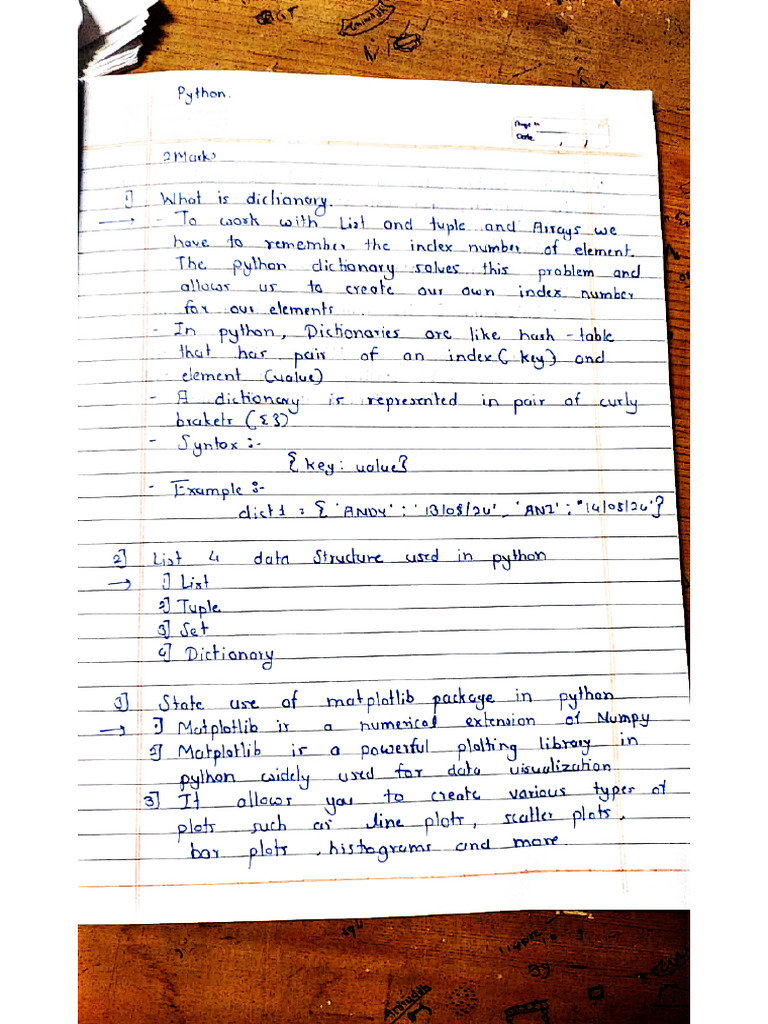 Python.
Page No
Date
2 Marks
1] What is dictionary.
→ - To work with List and tuple and Arrays we
have to remember the index number of element.
The python dictionary solves this problem and
allows us to create our own index number
for our elements
- In python, Dictionaries are like hash-table
that has pair of an index( key) and
element (value)
- A dictionary is represented in pair of curly
brakets ({})
- Syntax :-
{key: value}
- Example :-
dict1 = {'ANDY': '13/08/24', 'ANI': "14/08/24'}
2] List 4 data Structure used in python
→ 1] List
2] Tuple
3] Set
4] Dictionary
3] State use of matplotlib package in python
→ 1] Matplotlib is a numerical extension of Numpy
2] Matplotlib is a powerful plotting library in
python widely used for data visualization
3] It allows you to create various types of
plots such as line plots, scatter plots,
bar plots, histograms and more.
Aniruddh